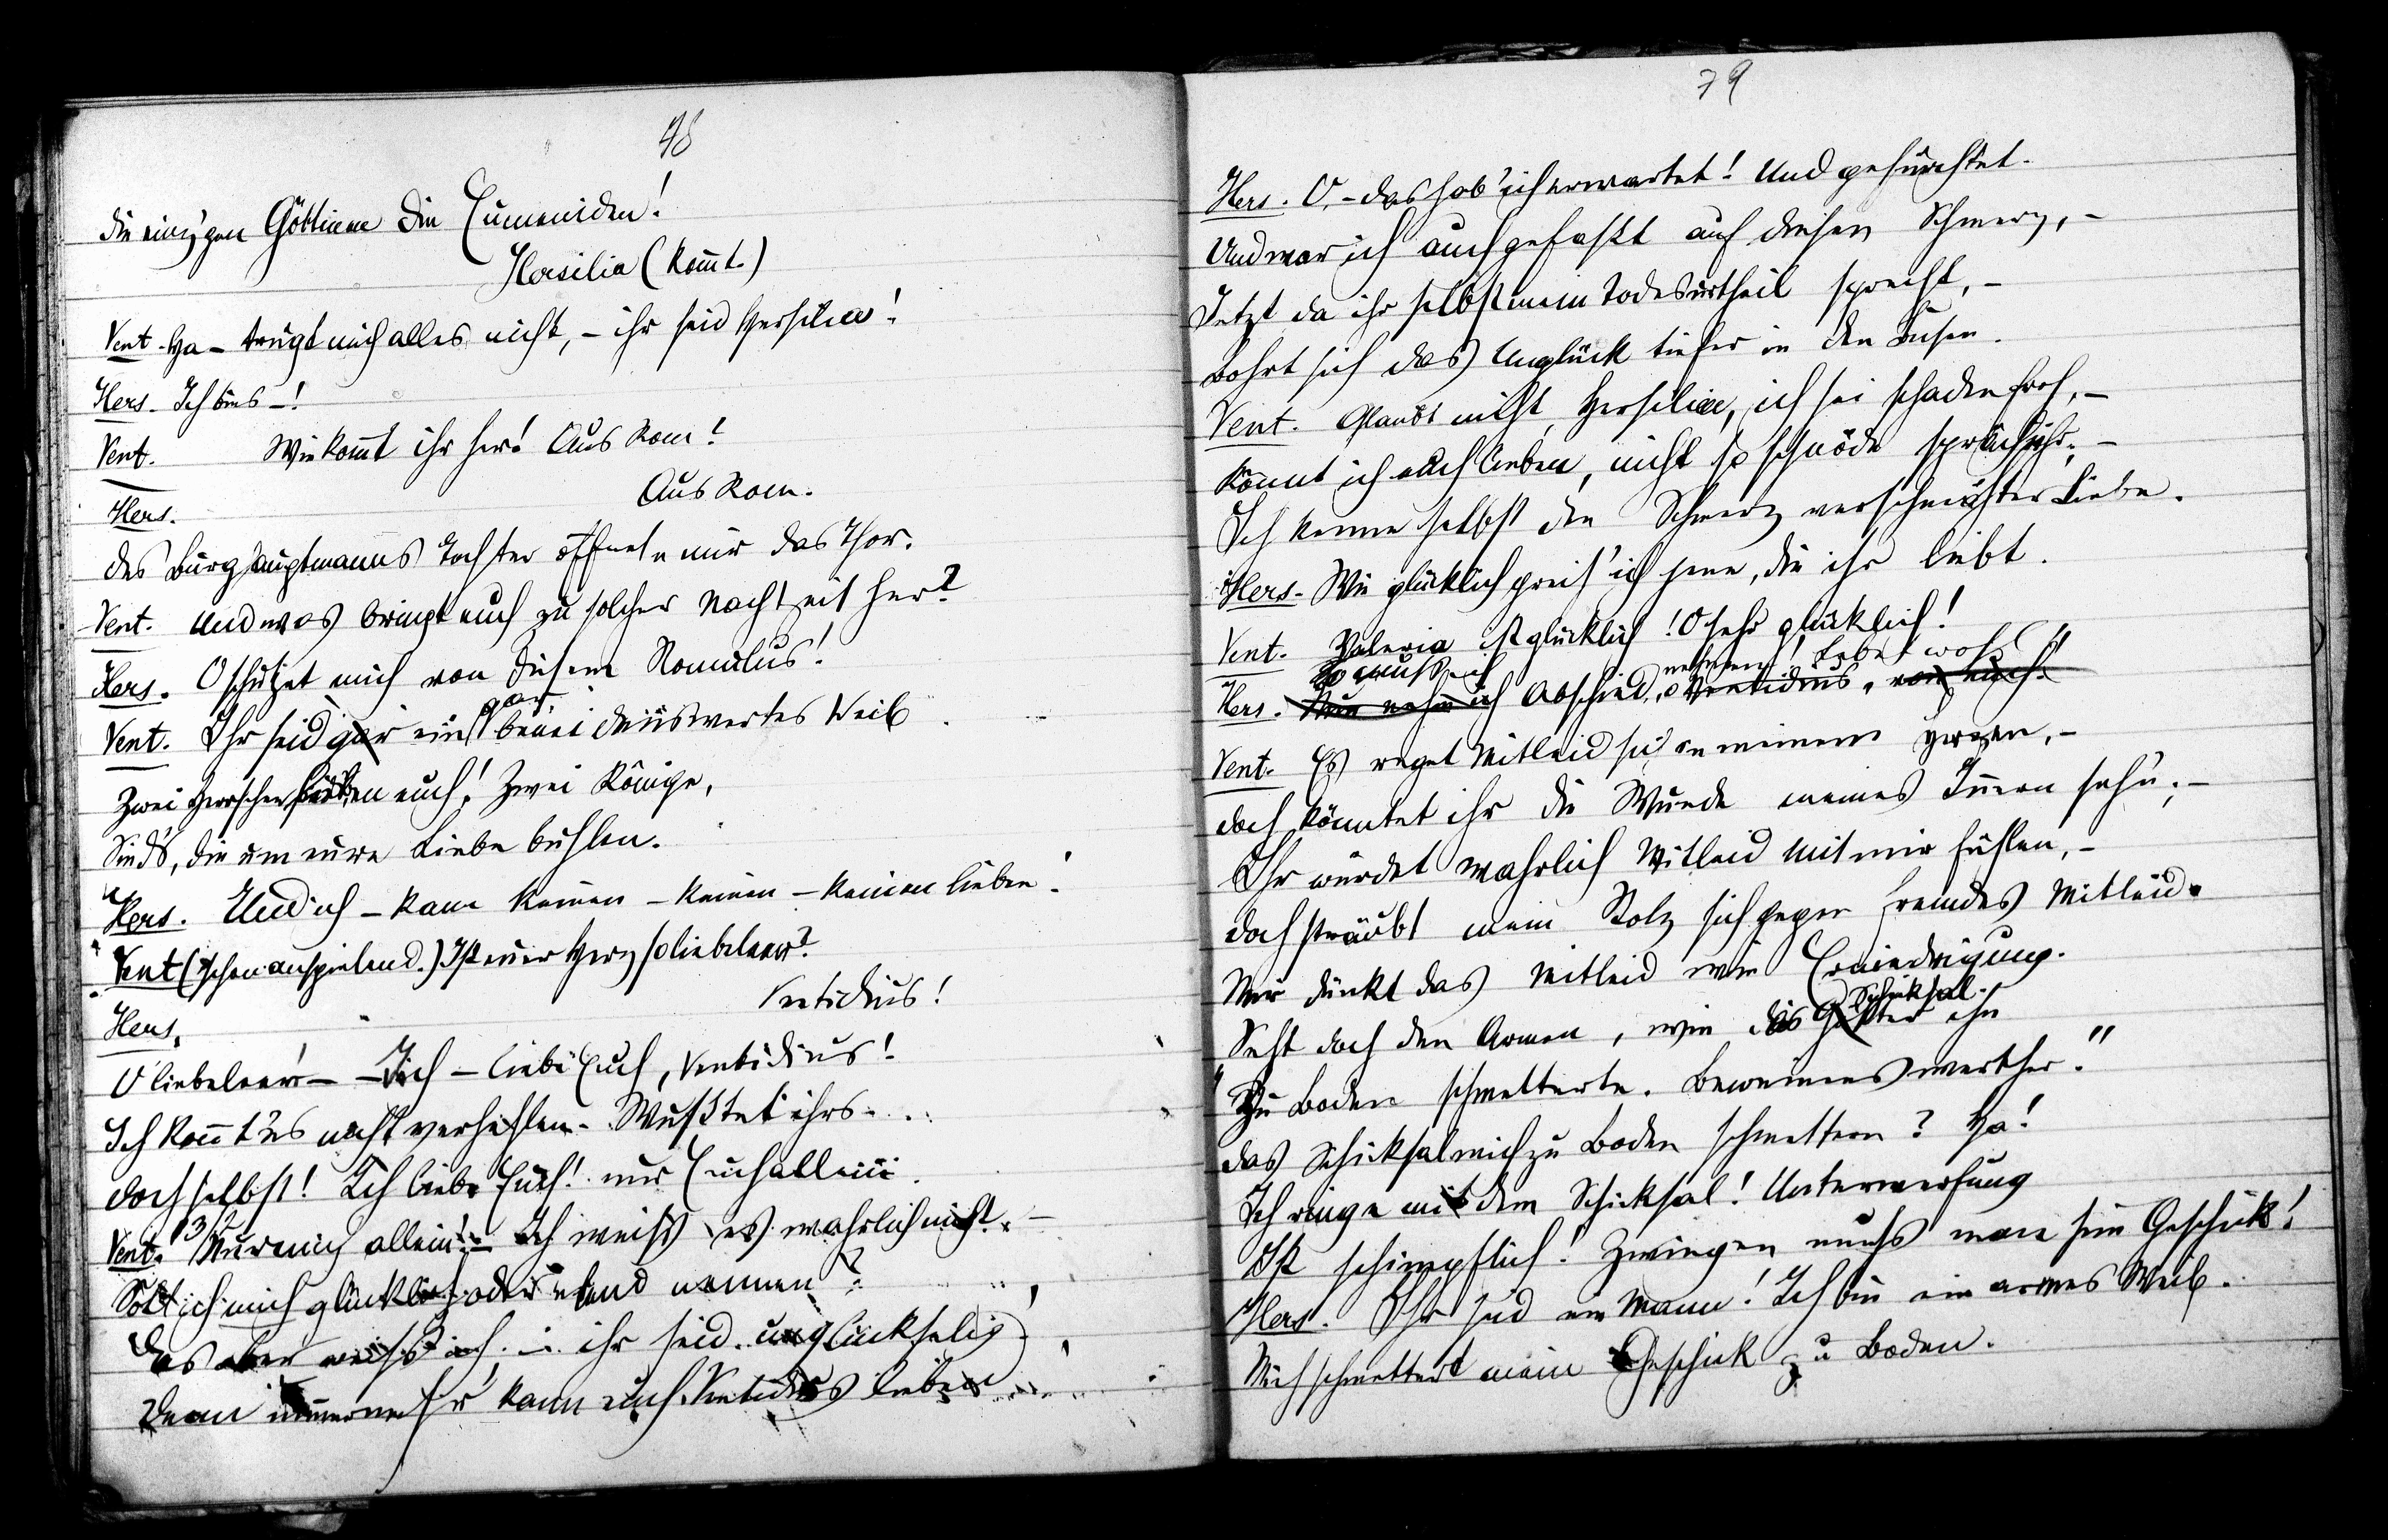 78
die einz'gen Göttinen die Eumeniden!
Hersilia (kommt.)
Vent. Ha – trügt mich alles nicht, – ihr seid Hersilia!
Hers. Ich bins –!
Vent. Wie kommt ihr her! Aus Rom?
Hers. Aus Rom.
Des Burghauptmanns Tochter öffnete mir das Thor.
Vent. Und was bringt euch zu solcher Nachtzeit her?
Hers. O schützet mich von diesem Romulus!
Vent. Ihr seid gar ein gar beneidenswertes Weib.
Zwei Herrscher bieten euch! Zwei Könige,
Sinds, die um eure Liebe buhlen.
Hers. Und ich – kann keinen – keinen – keinen lieben!
Vent (schon anspielend.) Ist euer Herz so liebeleer?
Hers. Ventidius!
O liebeleer – – Ich – liebe Euch, Ventidius!
Ich konnt' es nicht verhehlen. Wußtet ihrs
doch selbst! Ich liebe Euch! nur Euch allein.
Vent. Nur mich allein! – Ich weiß es wahrlich nicht. –
Sollt ich mich glücklich oder elend nennen?
Das aber weiß ich ihr seid unglückselig!
Denn nimmermehr kann euch Ventidius lieben
79
Hers. O, – das hab' ich erwartet! Und gefürchtet.
Und war ich auch gefaßt auf diesen Schmerz, –
Jetzt da ihr selbst mein Todesurtheil sprecht, –
Bohrt sich das Unglück tiefer in den Busen.
Vent. Glaubt nicht, Hersilia, ich sei schadenfroh, –
Könnt ich euch lieben, nicht so schnöde spräch ichs. –
Ich kenne selbst den Schmerz verschmähter Liebe.
Hers. Wie glücklich preis' ich jene, die ihr liebt.
Vent. Valeria ist glücklich! O sehr glücklich!
So muß ich nehmen! Lebet wohl
Hers. Nun nehm ich Abschied, o Ventidius, von euch.
Vent. Es reget Mitleid sich in meinem Herzen, –
doch könntet ihr die Wunde meines Innern sehn; –
Ihr würdet wahrlich Mitleid mit mir fühlen, –
doch sträubt mein Stolz sich gegen fremdes Mitleid.
Mir dünkt das Mitleid wie Erniedrigung.
Schicksal
Seht doch den Armen, wie das ihn
Zu Boden schmetterte. Beweinenswerther."
das Schicksal mich zu Boden schmettern? Ha!
Ich ringe mit dem Schicksal! Unterwerfung
Ist schimpflich! Zwingen muß man sein Geschick!
Hers. Ihr seid ein Mann! Ich bin ein armes Weib.
Mich schmettert mein Geschick zu Boden.